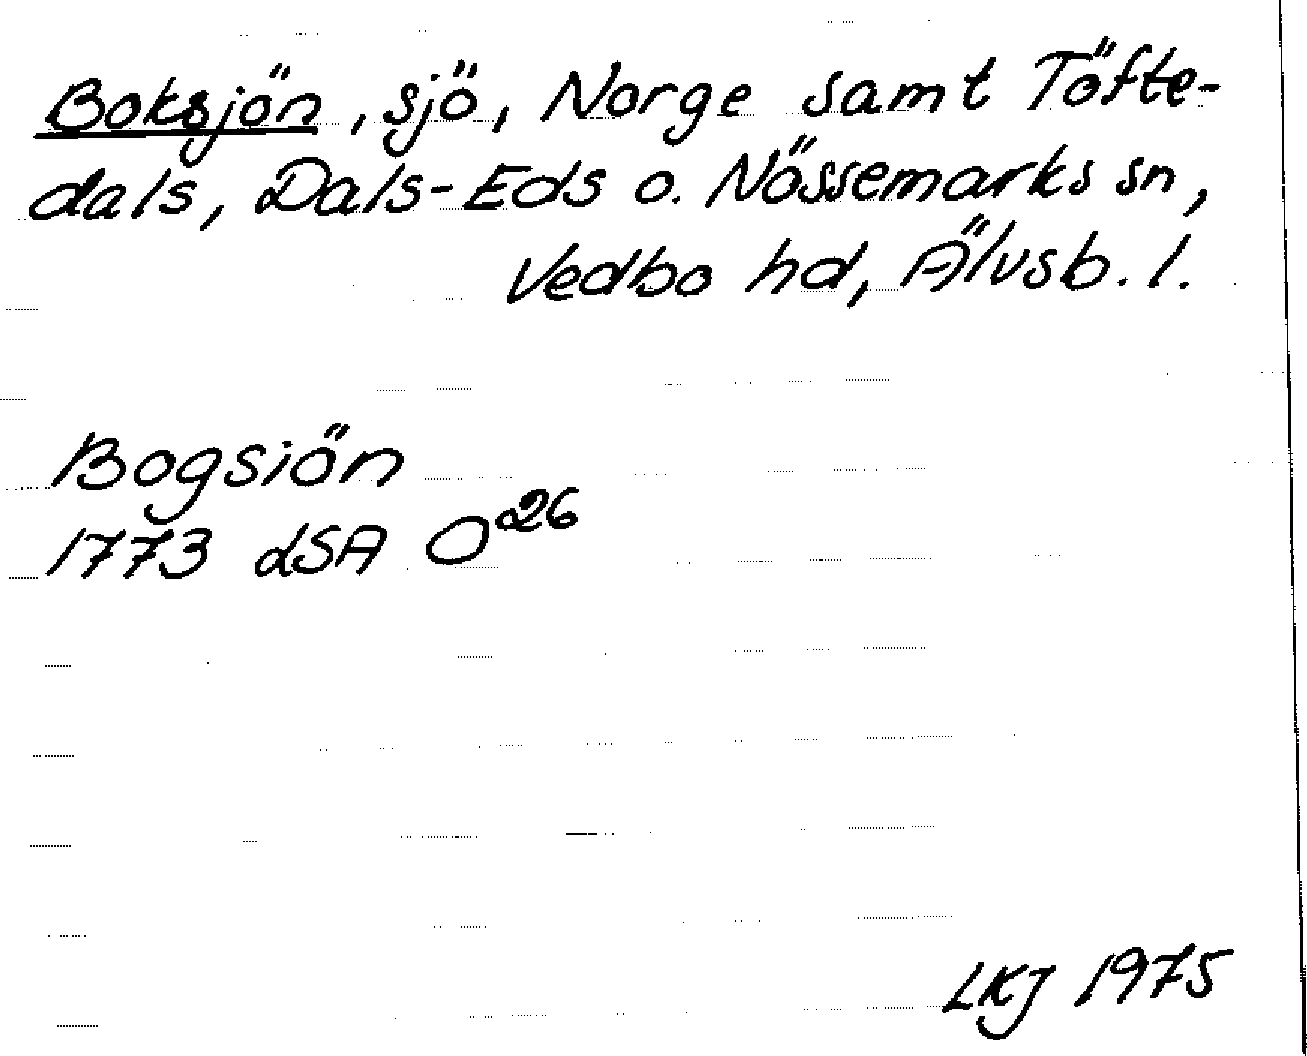 Boksjön, sjö, Norge samt Töfte-
dals, Dals-Eds o. Nössemarks sn,
Vedbo hd, Älvsb. l.
Bogsiön
1773 dSA O26
LKJ 1975